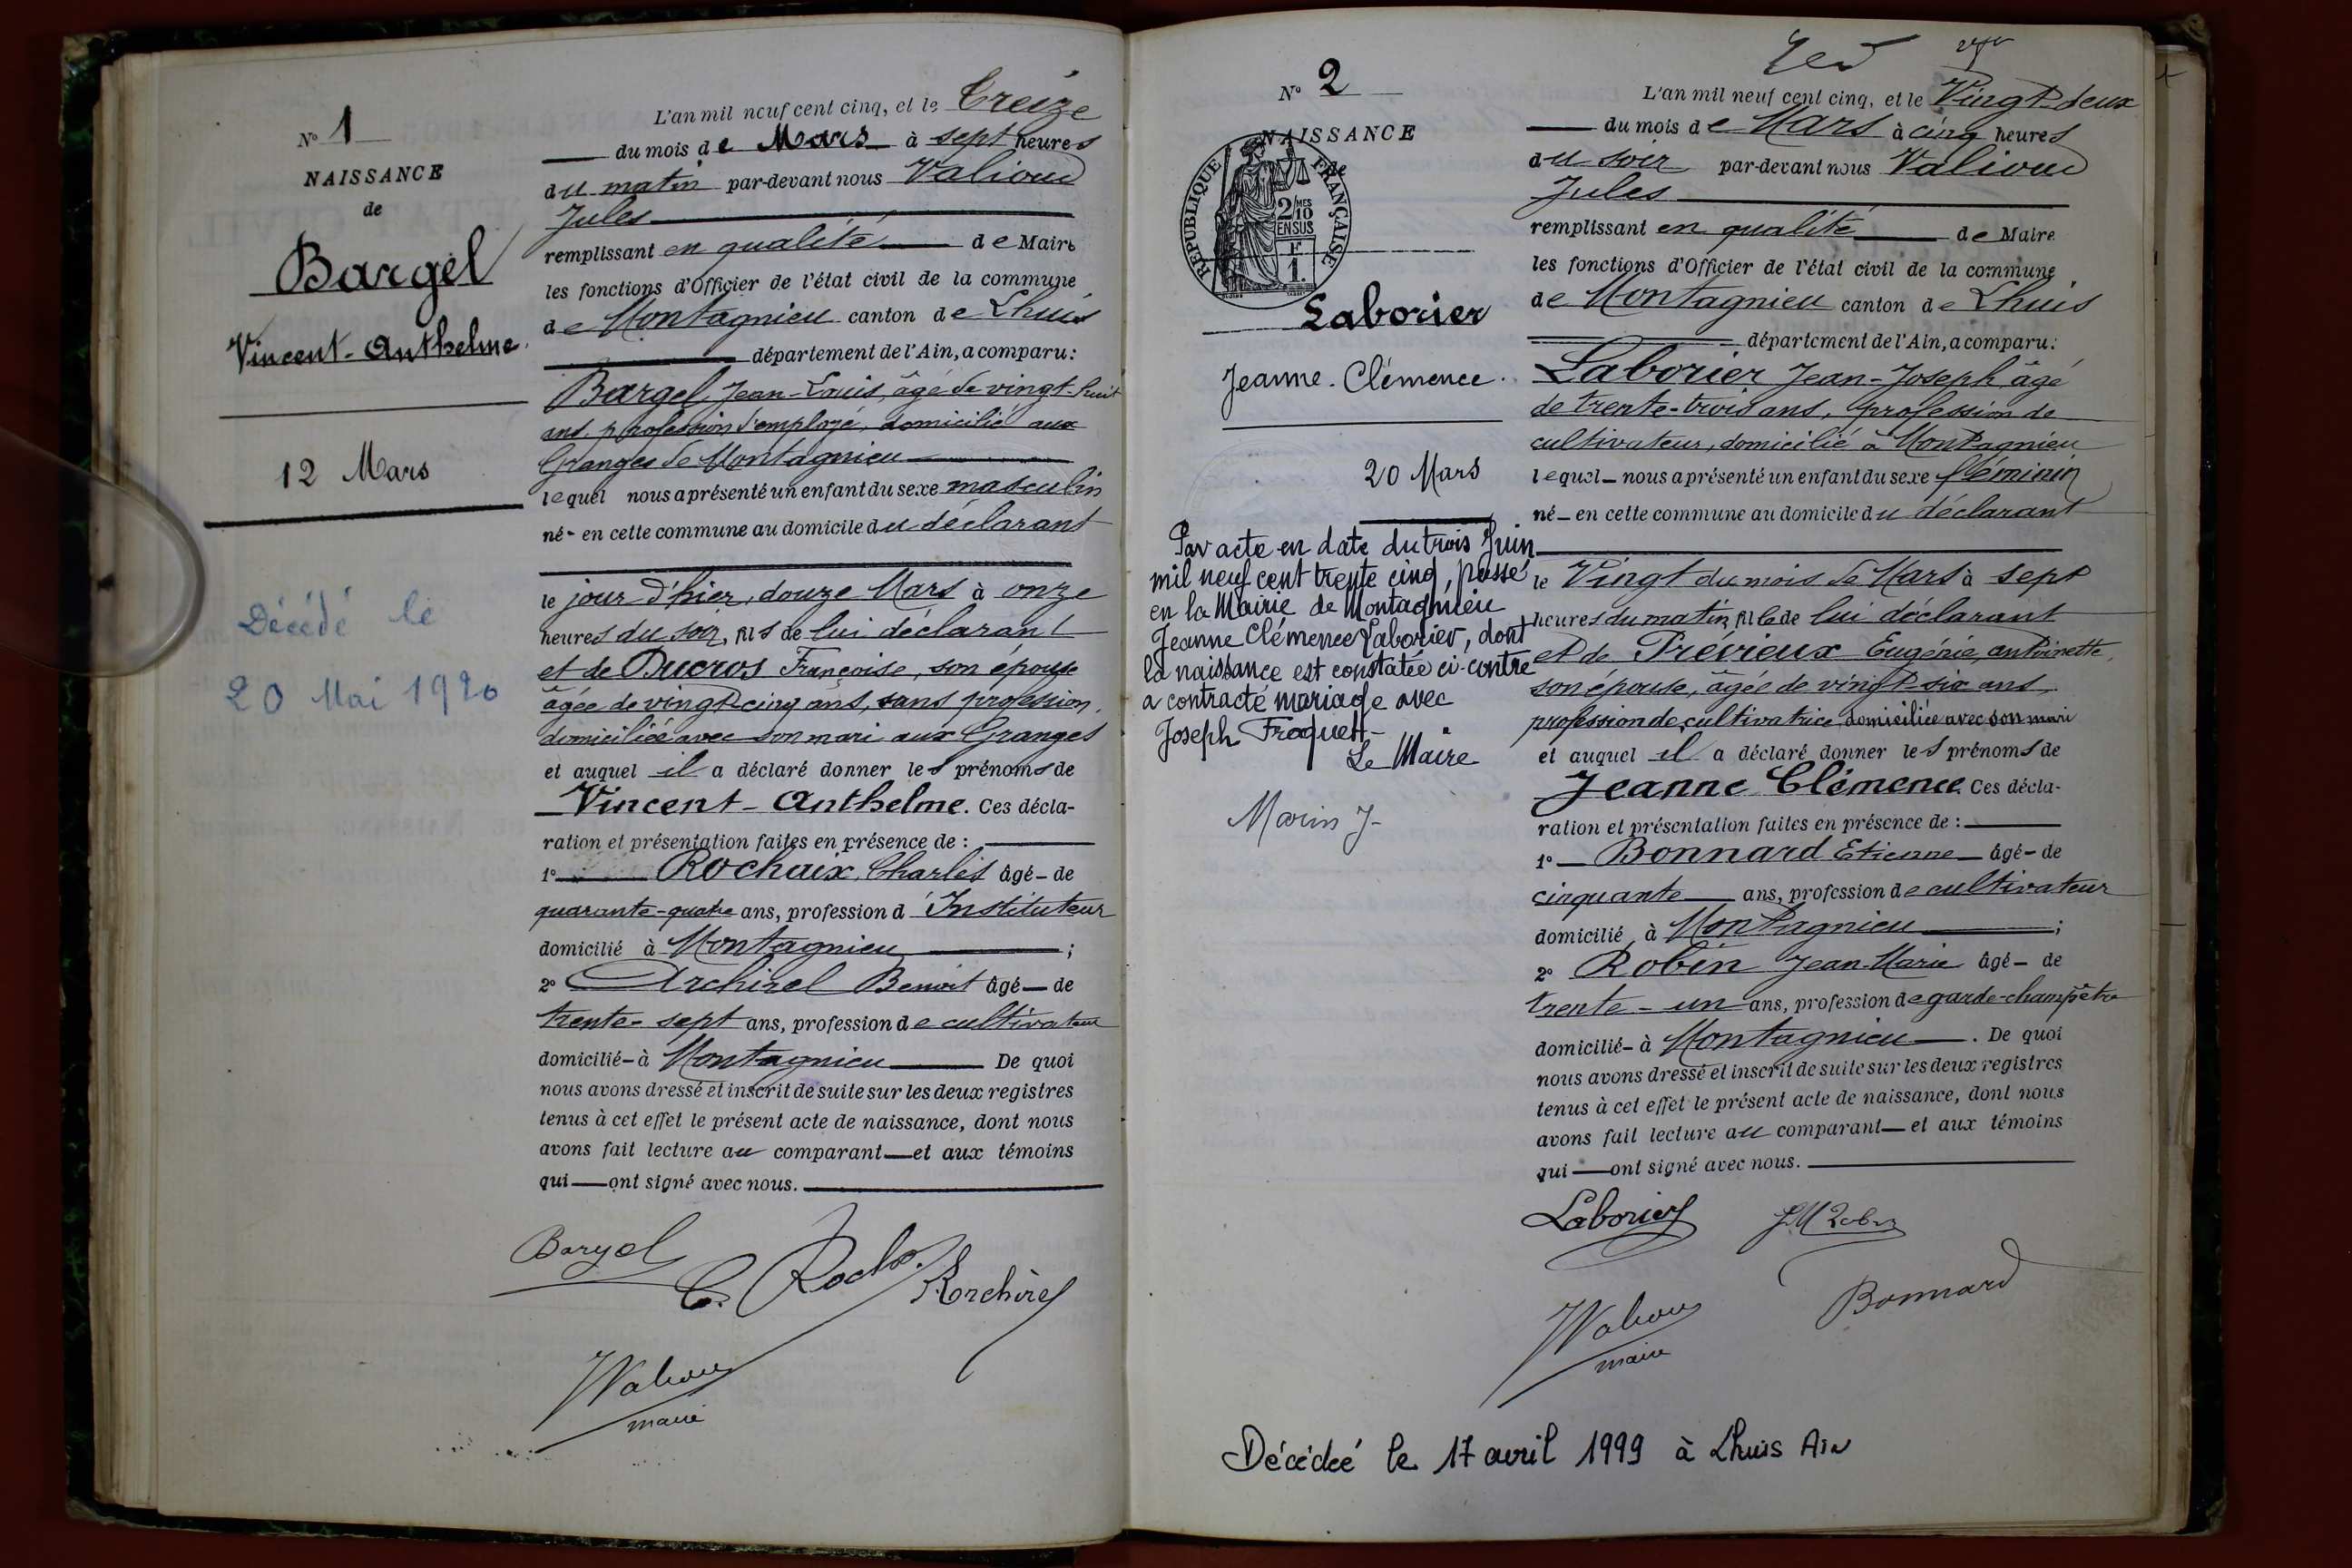 N° 1
NAISSANCE
de
Bargel
Vincent-Anthelme.
12 Mars
Décédé le
20 Mai 1920
L'an mil neuf cent cinq, et le Treize
du mois de Mars à sept heures
du matin par-devant nous Valioud
Jules
remplissant en qualité de Maire
les fonctions d'Officier de l'état civil de la commune
de Montagnieu canton de Lhuis
département de l'Ain, a comparu:
Bargel Jean-Louis, âgé de vingt-huit
ans, profession d'employé, domicilié aux
Granges de Montagnieu
lequel nous a présenté un enfant du sexe masculin
né - en cette commune au domicile du déclarant
le jour d'hier, douze Mars à onze
heures du soir, fils de lui déclarant
et de Ducros Françoise, son épouse
âgée de vingt-cinq ans, sans profession,
domiciliée avec son mari aux Granges
et auquel il a déclaré donner les prénoms de
Vincent-Anthelme. Ces décla-
ration et présentation faites en présence de :
1° Rochaix, Charles âgé - de
quarante-quatre ans, profession d'Instituteur
domicilié à Montagnieu ;
2° Archirel Benoit âgé - de
trente-sept ans, profession de cultivateur
domicilié - à Montagnieu De quoi
nous avons dressé et inscrit de suite sur les deux registres
tenus à cet effet le présent acte de naissance, dont nous
avons fait lecture au comparant - et aux témoins
qui - ont signé avec nous.
Bargel
C. Rochx
Archirel
JValioud
maire
N° 2
NAISSANCE
de
RÉPUBLIQUE FRANÇAISE
2/10 MES
EN SUS
F
1.
Laborier
Jeanne-Clémence.
20 Mars
Par acte en date du trois Juin
mil neuf cent trente cinq, passé
en la Mairie de Montagnieu
Jeanne Clémence Laborier, dont
la naissance est constatée ci-contre
a contracté mariage avec
Joseph Froquett-
Le Maire
Marin J-
L'an mil neuf cent cinq, et le Vingt-deux
du mois de Mars à cinq heures
du soir par-devant nous Valioud
Jules
remplissant en qualité de Maire
les fonctions d'Officier de l'état civil de la commune
de Montagnieu canton de Lhuis
département de l'Ain, a comparu:
Laborier Jean-Joseph âgé
de trente-trois ans, profession de
cultivateur, domicilié à Montagnieu
lequel - nous a présenté un enfant du sexe féminin
né - en cette commune au domicile du déclarant
le Vingt du mois de Mars à sept
heures du matin, fille de lui déclarant
et de Prévieux Eugénie, antoinette,
son épouse, âgée de vingt-six ans,
profession de cultivatrice domiciliée avec son mari
et auquel il a déclaré donner les prénoms de
Jeanne Clémence. Ces décla-
ration et présentation faites en présence de :
1° Bonnard Etienne âgé - de
cinquante ans, profession de cultivateur
domicilié à Montagnieu ;
2° Robin Jean-Marie âgé - de
trente-un ans, profession de garde-champêtre
domicilié - à Montagnieu. De quoi
nous avons dressé et inscrit de suite sur les deux registres
tenus à cet effet le présent acte de naissance, dont nous
avons fait lecture au comparant - et aux témoins
qui - ont signé avec nous.
Laborier
JM Robin
JValioud
maire
Bonnard
Décédée le 17 avril 1999 à Lhuis Ain